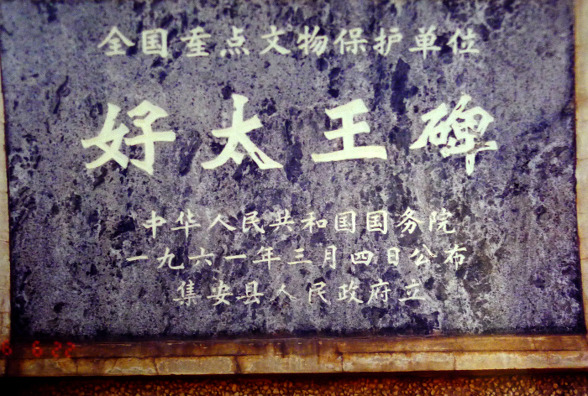 全国重点文物保护单位
好太王碑
中华人民共和国国务院
一九六一年三月四日公布
集安县人民政府立